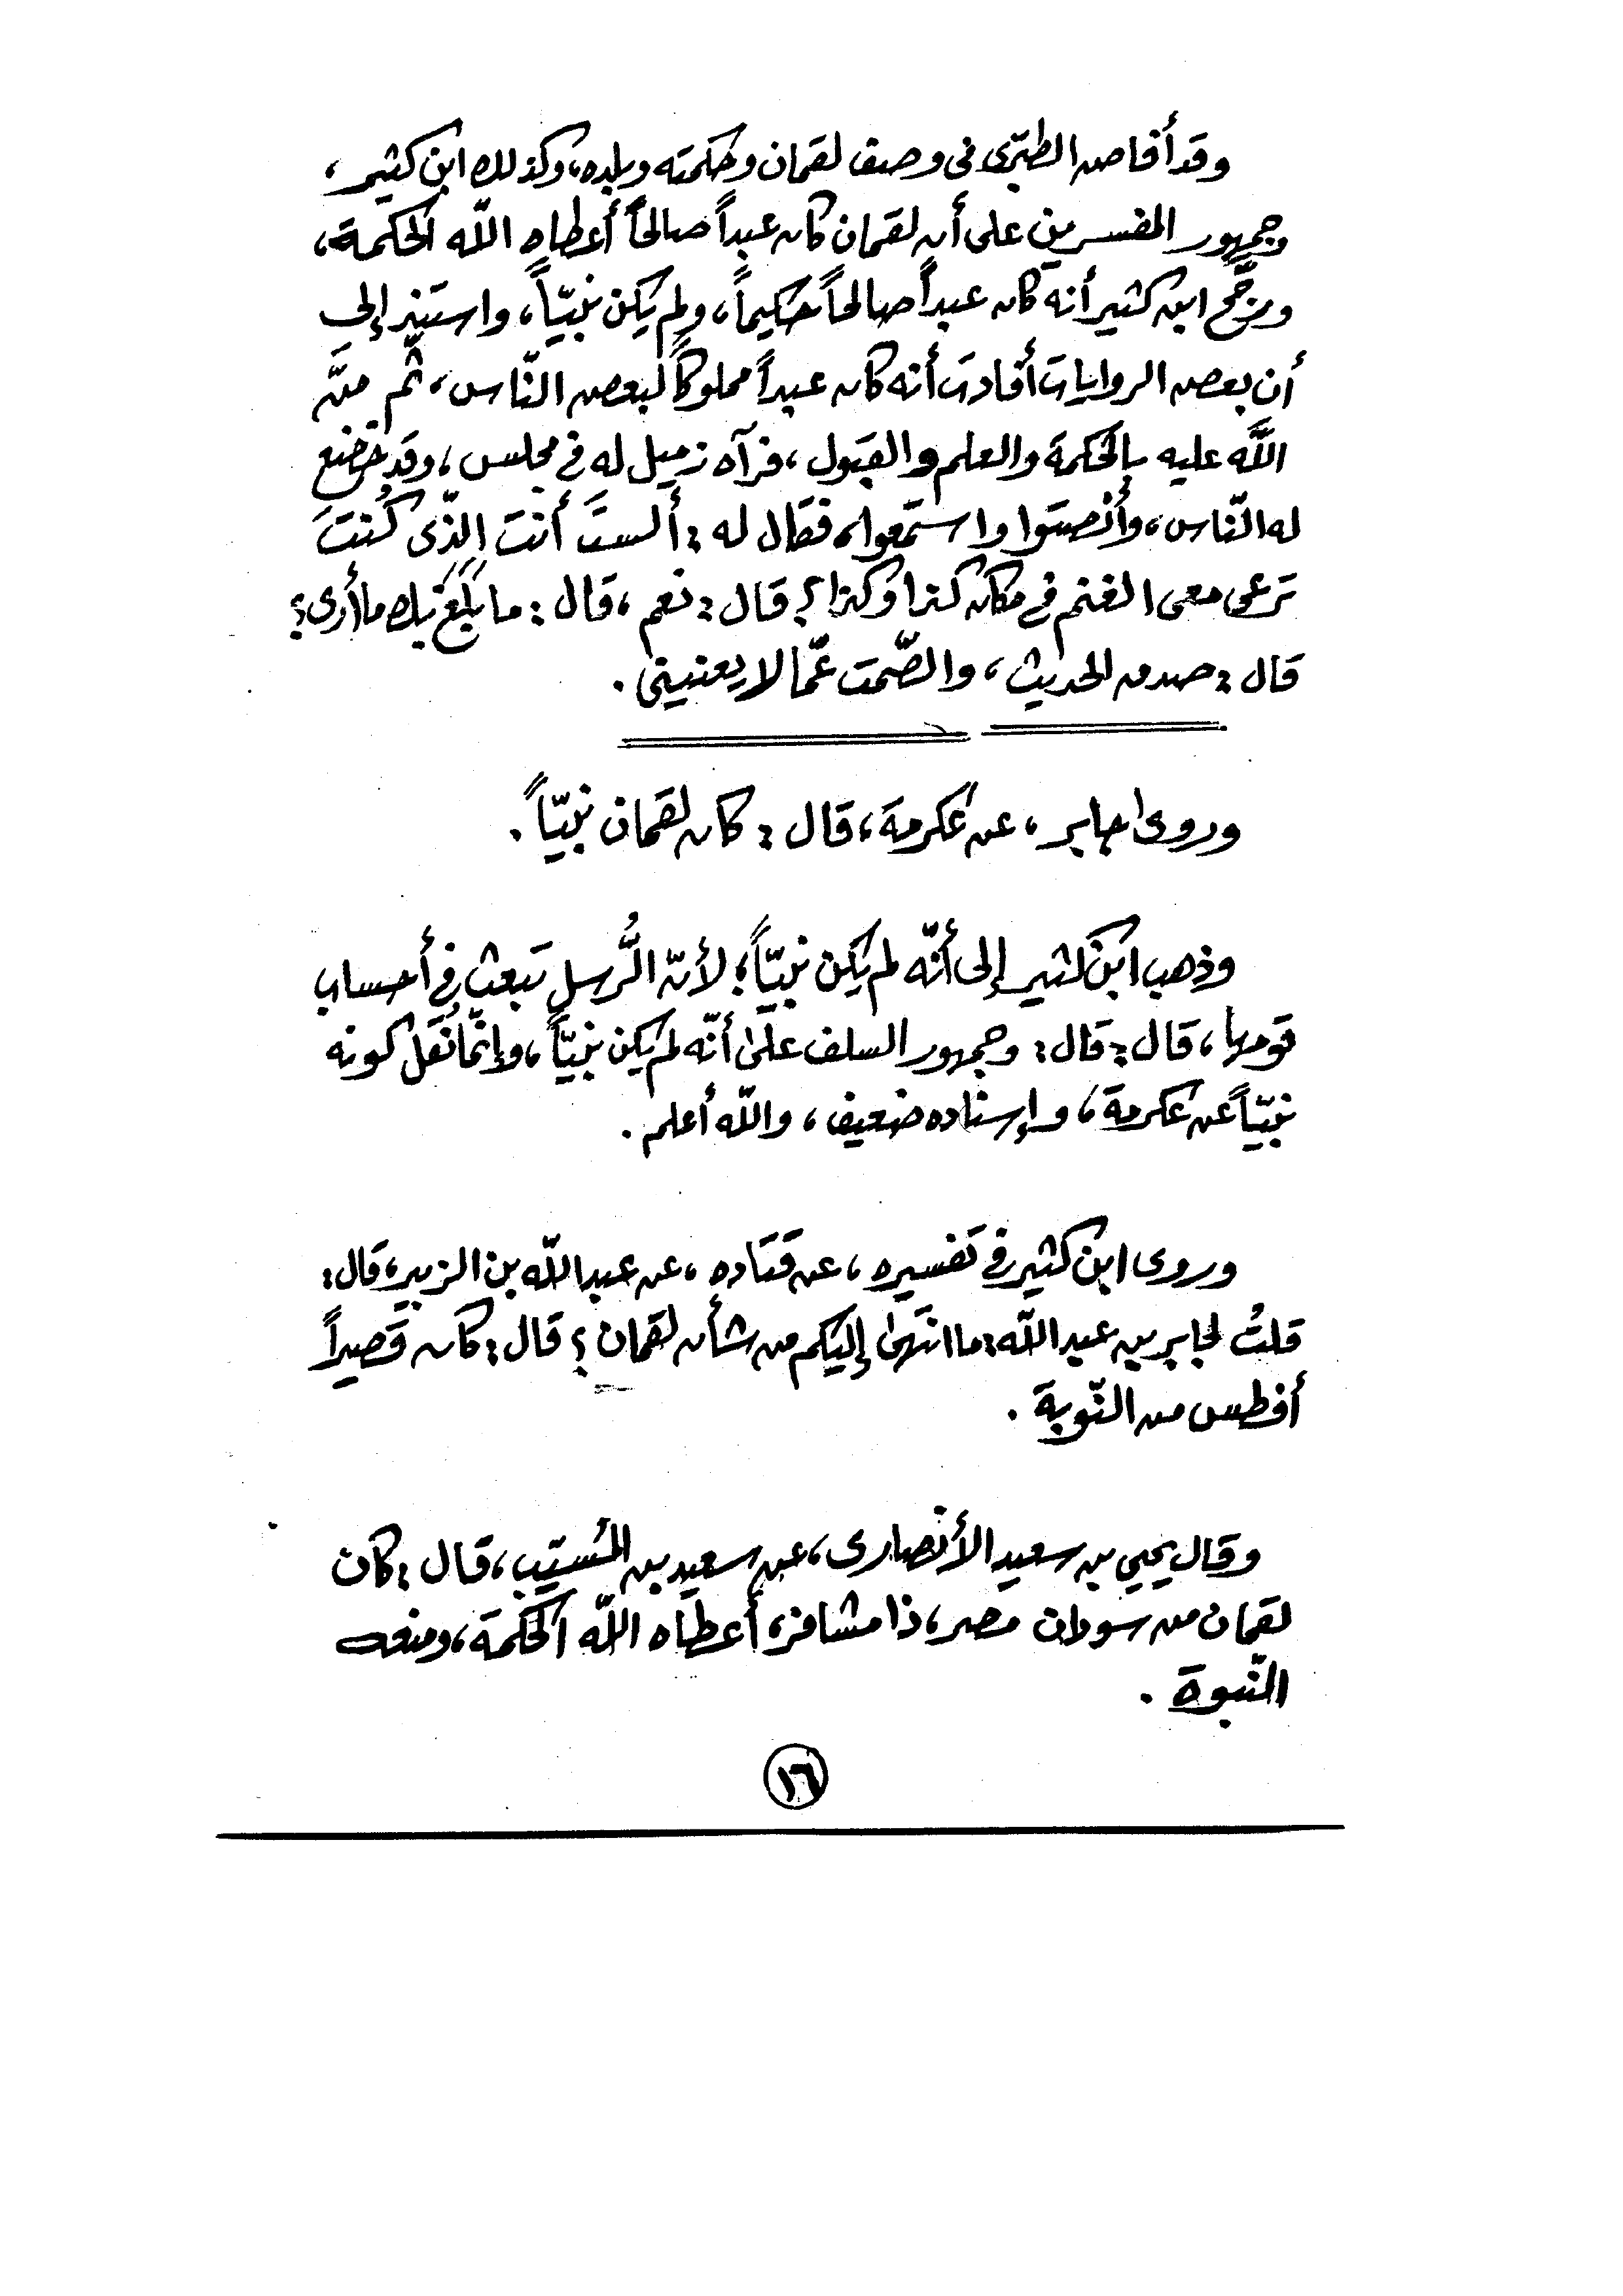 وقد أفاض الطبّرى فى وصف لقمان وحكمته وبلده، وكذلك ابن كثير،
وجمهور المفسرين على أن لقمان كان عبداً صالحاً أعطاه اللّه الحكمة،
ورجّح ابن كثير أنه كان عبداً صالحاً حكيماً، ولم يكن نبيّاً، واستند إلى
أن بعض الروايات أفادت أنه كان عبداً مملوكاً لبعض النّاس، ثّم منّ
اللَّه عليه بالحكمة والعلم والقبول، فرآه زميل له فى مجلس، وقد خضع
له النّاس، وأنصتوا واستمعوا، فقال له: ألستَ أنتَ الذّى كُنتَ
ترعى معى الغنم فى مكان كذا وكذا؟ قال: نعم، قال: ما بَلَغَ بك ما أرى؟
قال: صدق الحديث، والصّمت عمّا لا يعنينى.
وروى جابر، عن عكرمة، قال: كان لقمان نبيّاً.
وذهب ابن كثير إلى أنّه لم يكن نبيّاً؛ لأنّ الرُّسل تبعث فى أحساب
قومها، قال: قال: وجمهور السلف على أنّه لم يكن نبيّاً، وإنّما نُقل كونه
نبيّاً عن عكرمة، وإسناده ضعيف، واللّه أعلم.
وروى ابن كثير فى تفسيره، عن قتاده، عن عبد اللّه بن الزبير، قال:
قلتُ لجابر بن عبد اللّه: ما انتهى إليكم من شأن لقمان؟ قال: كان قصيراً
أفطس من النّوبة.
وقال يحيى بن سعيد الأنصارى، عن سعيد بن المُسيّب، قال: كان
لقمان من سودان مصر، ذا مشافر، أعطاه اللّه الحكمة، ومنعه
النّبوة.
١٦